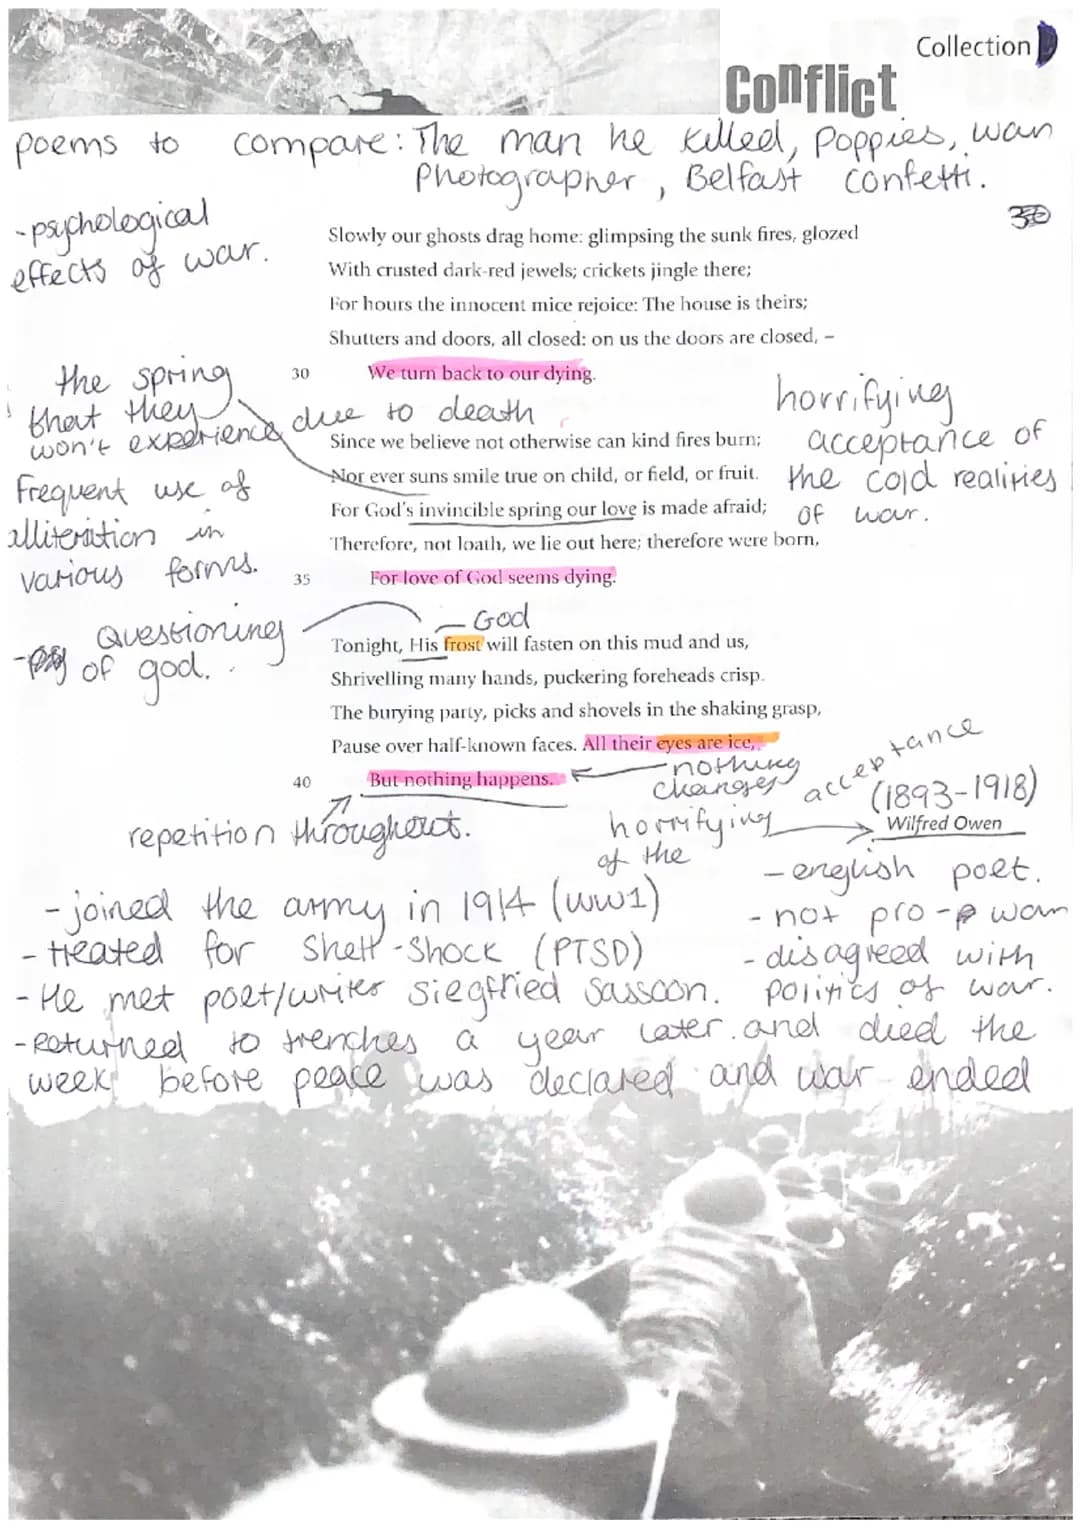 Collection D
Conflict
poems to compare: The man he killed, Poppies, war
Photographer, Belfast confetti.
-psychological
effects of war.
Slowly our ghosts drag home: glimpsing the sunk fires, glozed
With crusted dark-red jewels; crickets jingle there;
For hours the innocent mice rejoice: The house is theirs;
Shutters and doors, all closed: on us the doors are closed, –
30 We turn back to our dying.
the spring
that they
won't experience due to death
horrifying
acceptance of
the cold realities
of war.
Since we believe not otherwise can kind fires burn;
Nor ever suns smile true on child, or field, or fruit.
For God's invincible spring our love is made afraid;
Therefore, not loath, we lie out here; therefore were born,
35 For love of God seems dying.
Frequent use of
alliteration in
various forms.
Questioning
of god.
God
Tonight, His frost will fasten on this mud and us,
Shrivelling many hands, puckering foreheads crisp.
The burying party, picks and shovels in the shaking grasp,
Pause over half-known faces. All their eyes are ice,
40 But nothing happens.
nothing
changes
repetition throughout.
horrifying
of the
acceptance
(1893-1918)
Wilfred Owen
- english poet.
- not pro- war
- disagreed with
politics of war.
- joined the army in 1914 (WW1)
- treated for Shell-Shock (PTSD)
- He met poet/writer Siegfried Sassoon.
- Returned to trenches a year later and died the
week before peace was declared and war ended